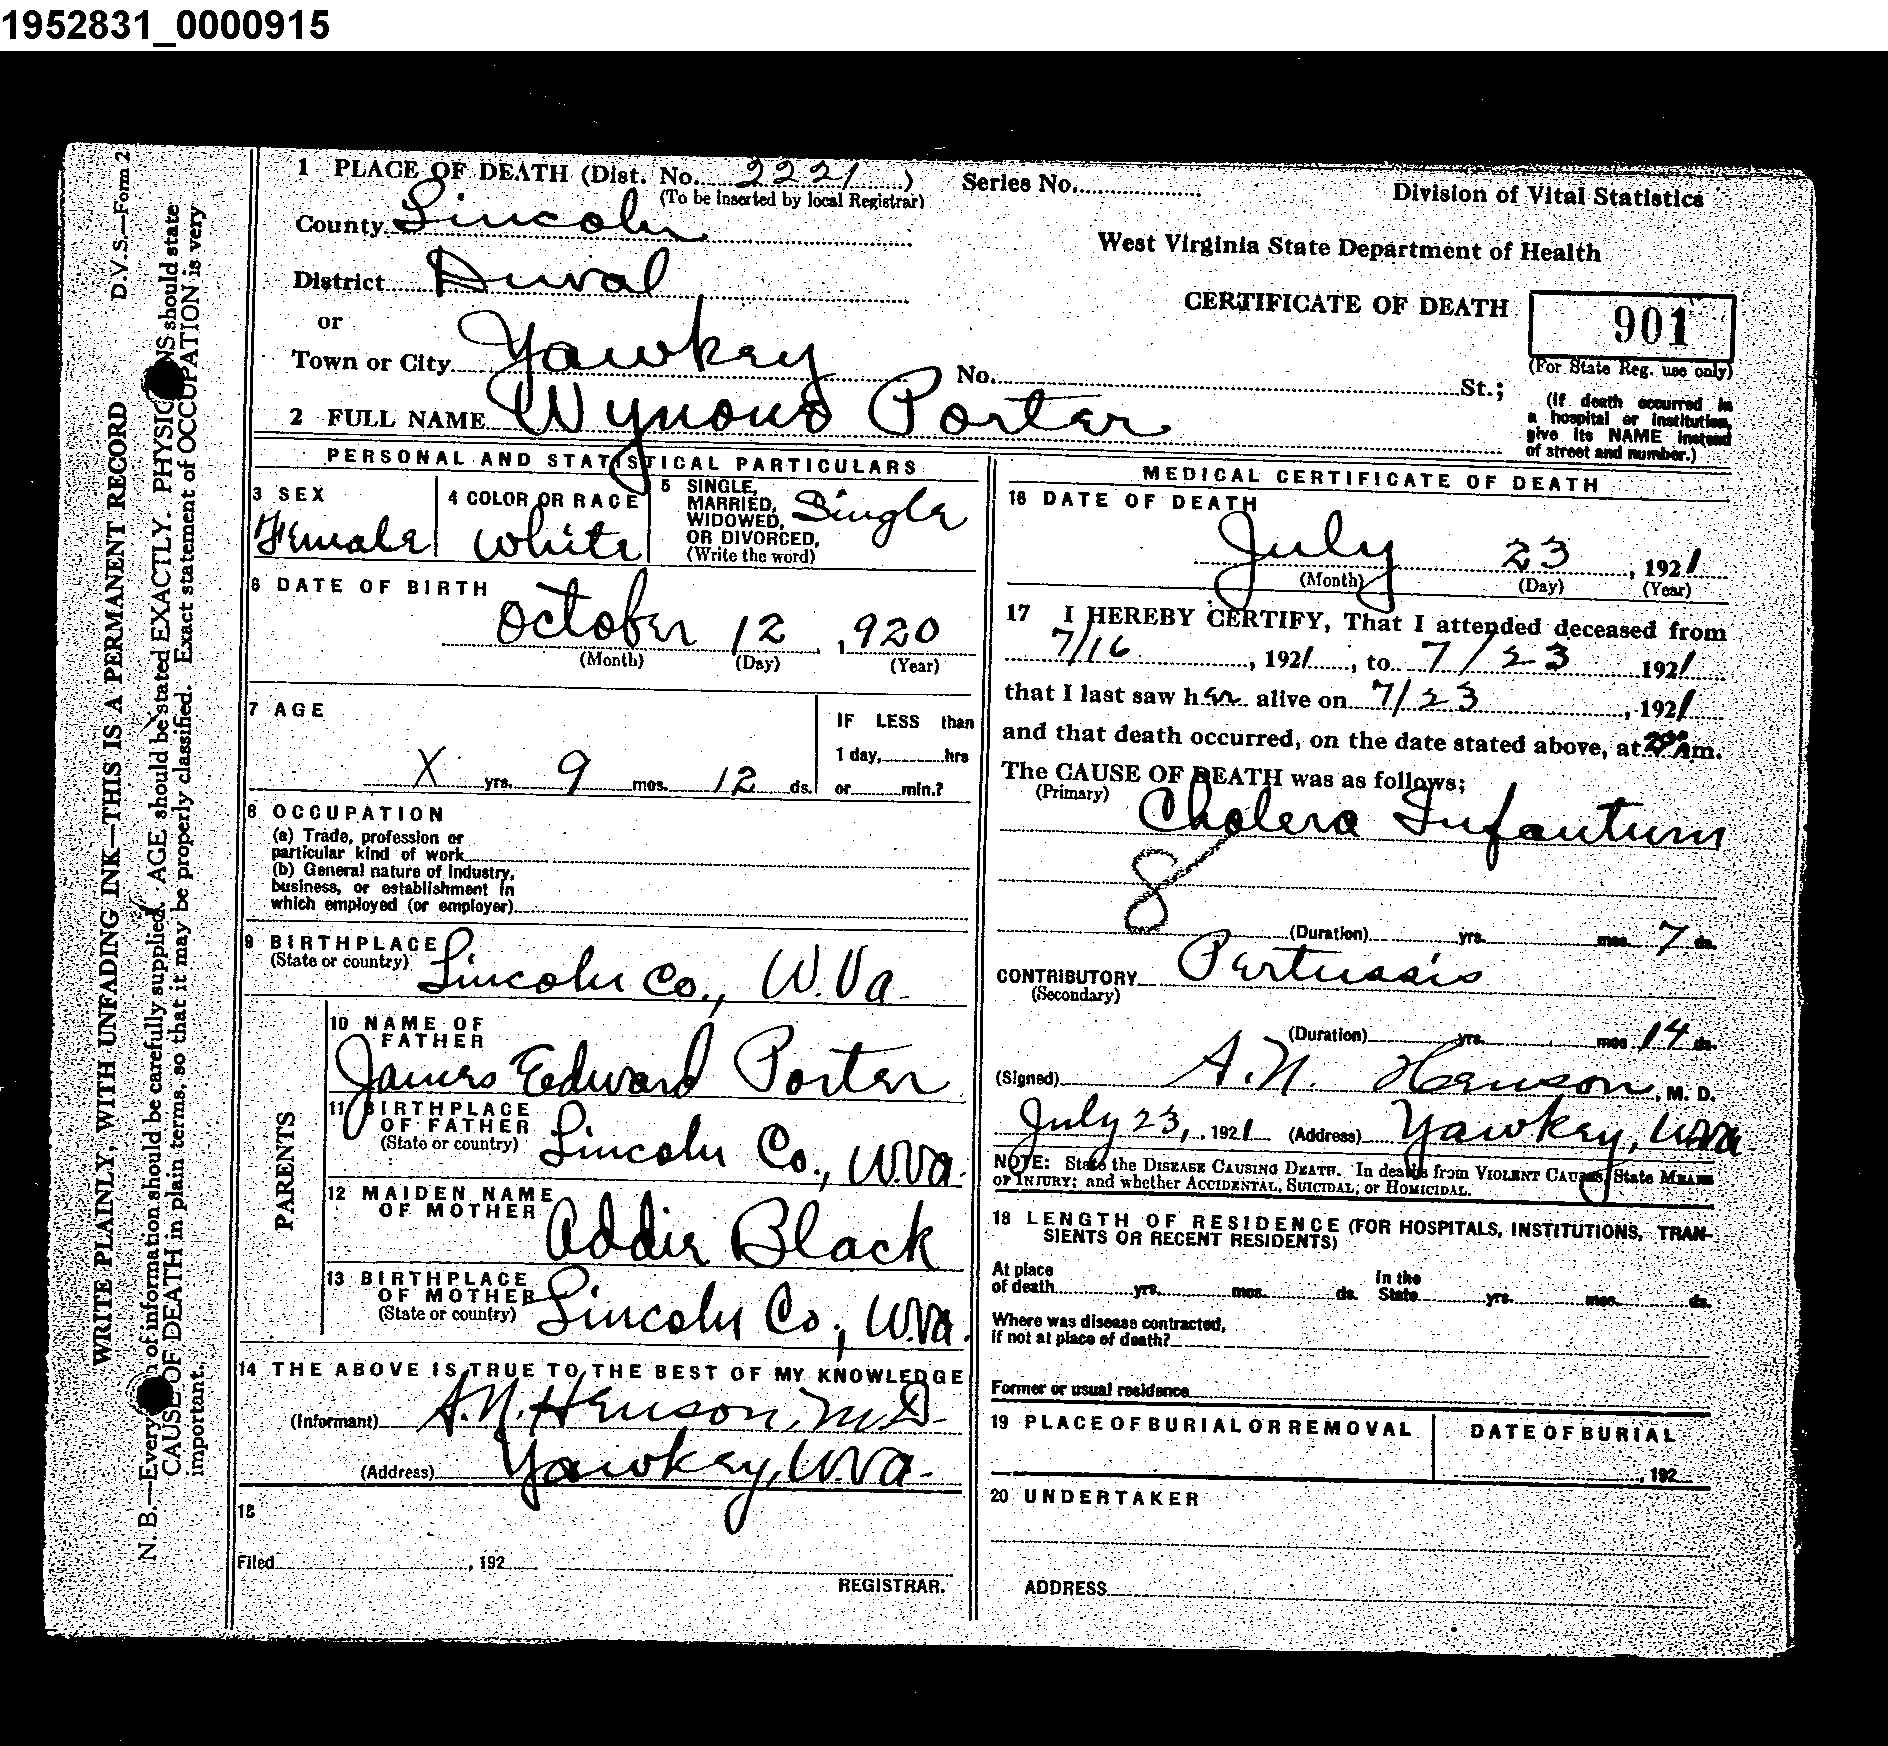 1952831_0000915
D.V.S.—Form 2
WRITE PLAINLY, WITH UNFADING INK—THIS IS A PERMANENT RECORD
N. B.—Every of information should be carefully supplied. AGE should be stated EXACTLY. PHYSIC NS should state
CAUSE OF DEATH in plain terms, so that it may be properly classified. Exact statement of OCCUPATION is very
important.
1 PLACE OF DEATH (Dist. No. 2221)
(To be inserted by local Registrar)
Series No.
Division of Vital Statistics
County Lincoln
West Virginia State Department of Health
District Duval
or
CERTIFICATE OF DEATH
901
(For State Reg. use only)
Town or City Yawkey
No. St.;
(If death occurred in
a hospital or institution,
give its NAME instead
of street and number.)
2 FULL NAME Wynous Porter
PERSONAL AND STATISTICAL PARTICULARS
3 SEX
Female
4 COLOR OR RACE
White
5 SINGLE,
MARRIED,
WIDOWED,
OR DIVORCED,
(Write the word)
Single
6 DATE OF BIRTH
October 12, 920
(Month) (Day) (Year)
7 AGE
X yrs. 9 mos. 12 ds.
IF LESS than
1 day, hrs
or min.?
8 OCCUPATION
(a) Trade, profession or
particular kind of work
(b) General nature of Industry,
business, or establishment in
which employed (or employer)
9 BIRTHPLACE
(State or country)
Lincoln Co., W.Va.
PARENTS
10 NAME OF
FATHER
James Edward Porter
11 BIRTHPLACE
OF FATHER
(State or country)
Lincoln Co., W.Va.
12 MAIDEN NAME
OF MOTHER
Addie Black
13 BIRTHPLACE
OF MOTHER
(State or country)
Lincoln Co., W.Va.
14 THE ABOVE IS TRUE TO THE BEST OF MY KNOWLEDGE
(Informant) A.N. Henson, M.D.
(Address) Yawkey, W.Va.
15
Filed , 192
REGISTRAR.
MEDICAL CERTIFICATE OF DEATH
16 DATE OF DEATH
July 23, 1921
(Month) (Day) (Year)
17 I HEREBY CERTIFY, That I attended deceased from
7/16, 1921, to 7/23 1921
that I last saw her alive on 7/23, 1921
and that death occurred, on the date stated above, at Am.
The CAUSE OF DEATH was as follows;
(Primary)
Cholera Infantum
8
(Duration) yrs. mos. 7 ds.
CONTRIBUTORY Pertussis
(Secondary)
(Duration) yrs. mos. 14 ds.
(Signed) A.N. Henson, M. D.
July 23, 1921 (Address) Yawkey, W.Va.
NOTE: State the DISEASE CAUSING DEATH. In deaths from VIOLENT CAUSES, State MEANS
OF INJURY; and whether ACCIDENTAL, SUICIDAL, or HOMICIDAL.
18 LENGTH OF RESIDENCE (FOR HOSPITALS, INSTITUTIONS, TRAN-
SIENTS OR RECENT RESIDENTS)
At place
of death yrs. mos. ds.
In the
State yrs. mos. ds.
Where was disease contracted,
if not at place of death?
Former or usual residence
19 PLACE OF BURIAL OR REMOVAL
DATE OF BURIAL
, 192
20 UNDERTAKER
ADDRESS